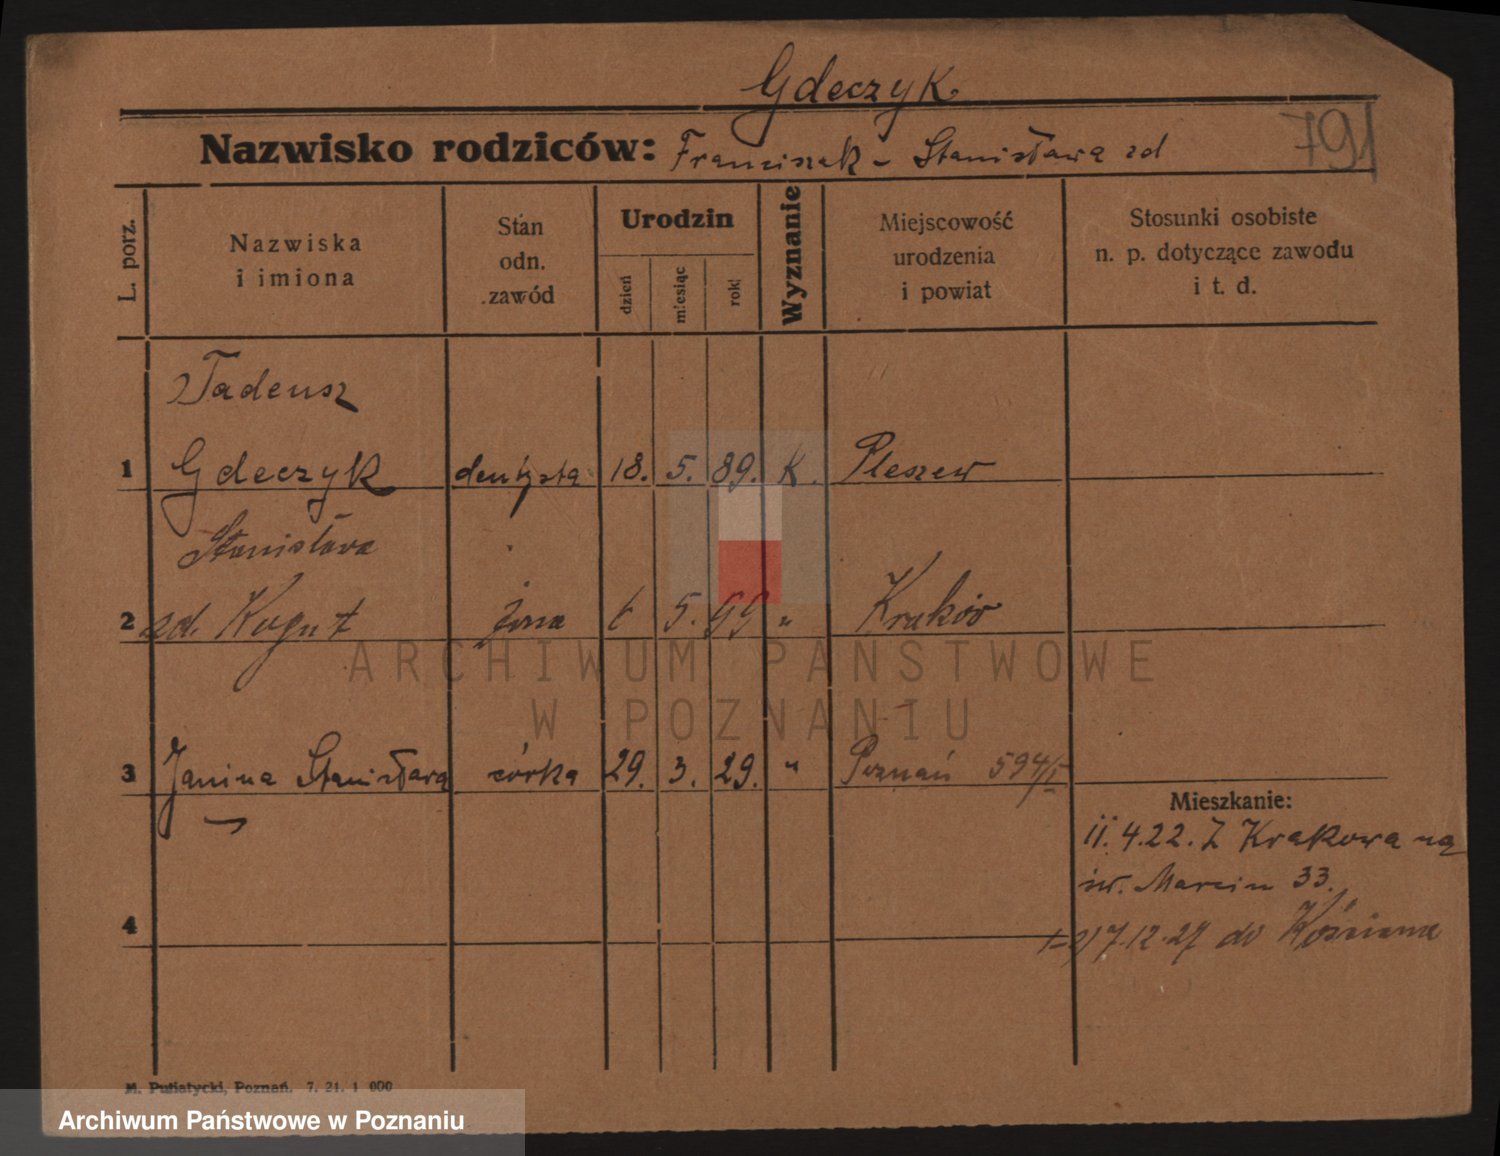 Gdeczyk
Nazwisko rodziców: Franciszek – Stanisława zd
791
L. porz.
Nazwiska
i imiona
Stan
odn.
zawód
Urodzin
dzień
miesiąc
rok
Wyznanie
Miejscowość
urodzenia
i powiat
Stosunki osobiste
n. p. dotyczące zawodu
i t. d.
Tadeusz
1 Gdeczyk dentysta 18. 5. 89. K. Pleszew
Stanisława
2 zd. Kogut żona 6 5. 99 " Kraków
ARCHIWUM PAŃSTWOWE
W POZNANIU
3 Janina Stanisława córka 29. 3. 29. " Poznań 594/I
Mieszkanie:
11. 4. 22. Z Krakowa na
św. Marcin 33.
4
1-2) 7.12.27 do Kościana
M. Putiatycki, Poznań. 7. 21. 1 000
Archiwum Państwowe w Poznaniu